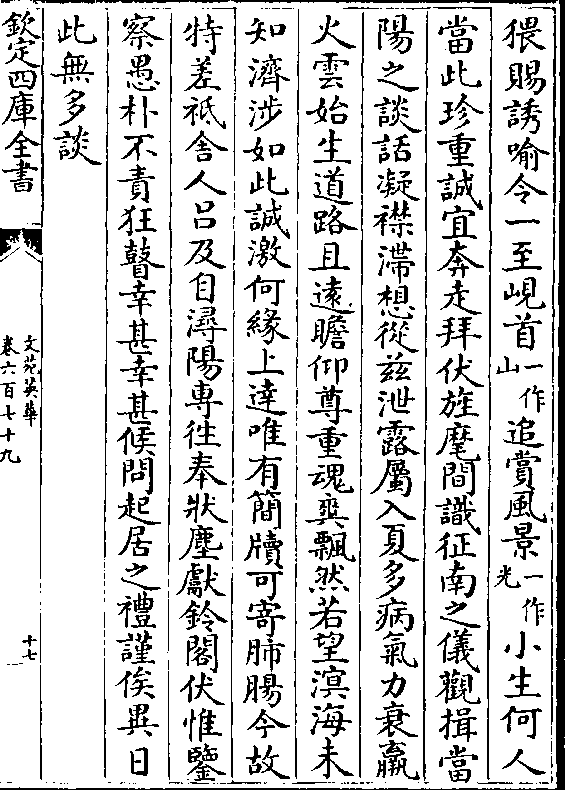 猥賜誘喻令一至峴首一作山追賞風景一作光小生何人
當此珍重誠宜奔走拜伏旌麾間識征南之儀觀揖當
陽之談話凝襟滯想從兹泄露屬入夏多病氣力衰羸
火雲始生道路且遠瞻仰尊重魂爽飄然若望溟海未
知濟涉如此誠激何緣上達唯有簡牘可寄肺腸今故
特差祇舍人吕及自潯陽專徃奉狀塵獻鈴閣伏惟鑒
察愚朴不責狂瞽幸甚幸甚候問起居之禮謹俟異日
此無多談
欽定四庫全書
文苑英華
卷六百七十九
十七